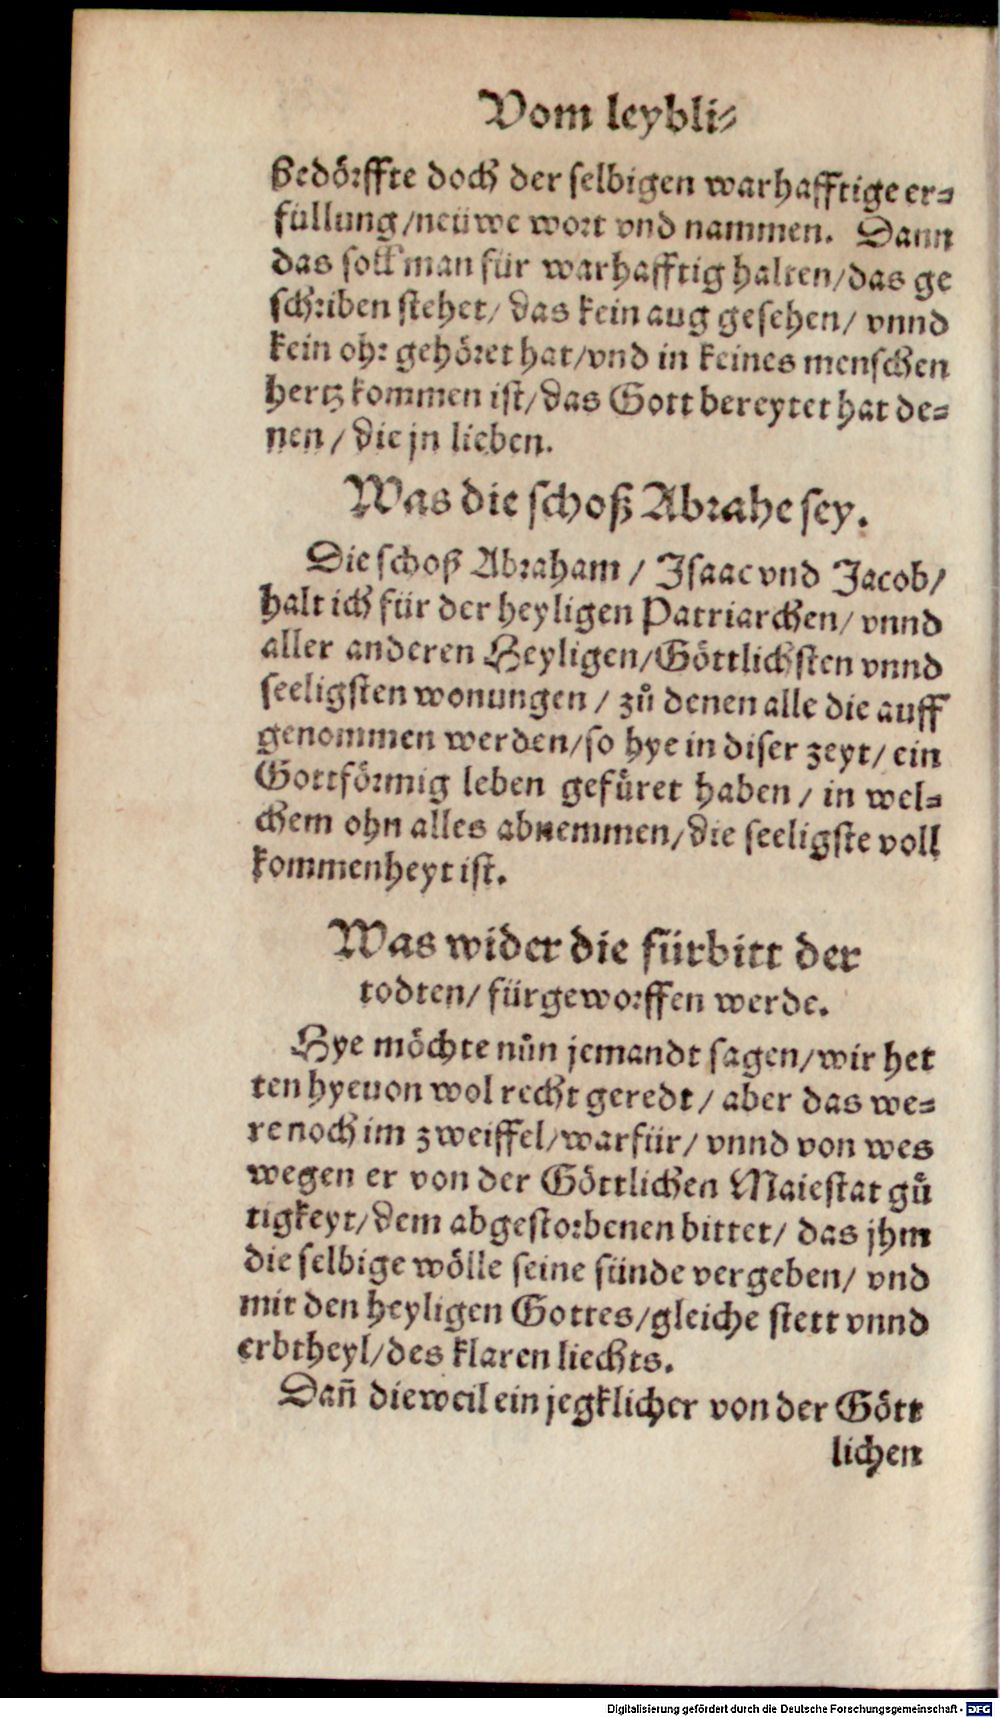 Vom leybli⸗
Bedörffte doch der selbigen warhafftige er⸗
füllung/neüwe wort vnd nammen. Dann
das soll man für warhafftig halten/das ge
schriben stehet/ das kein aug gesehen/ vnnd
kein ohr gehöret hat/vnd in keines menschen
hertz kommen ist/das Gott bereytet hat de⸗
nen / die jn lieben.
Was die schoß Abrahe sey.
Die schoß Abraham / Isaac vnd Jacob/
halt ich für der heyligen Patriarchen/ vnnd
aller anderen Heyligen/Göttlichsten vnnd
seeligsten wonungen / zů denen alle die auff
genommen werden/so hye in diser zeyt/ ein
Gottförmig leben gefüret haben / in wel⸗
chem ohn alles abnemmen/die seeligste voll
kommenheyt ist.
Was wider die fürbitt der
todten/ fürgeworffen werde.
Hye möchte nůn jemandt sagen/wir het
ten hyeuon wol recht geredt / aber das we⸗
re noch im zweiffel/warfür/ vnnd von wes
wegen er von der Göttlichen Maiestat gů
tigkeyt/dem abgestorbenen bittet/ das jhm
die selbige wölle seine sünde vergeben/ vnd
mit den heyligen Gottes/gleiche stett vnnd
erbtheyl/des klaren liechts.
Dañ dieweil ein jegklicher von der Gött
lichen
Digitalisierung gefördert durch die Deutsche Forschungsgemeinschaft - DFG